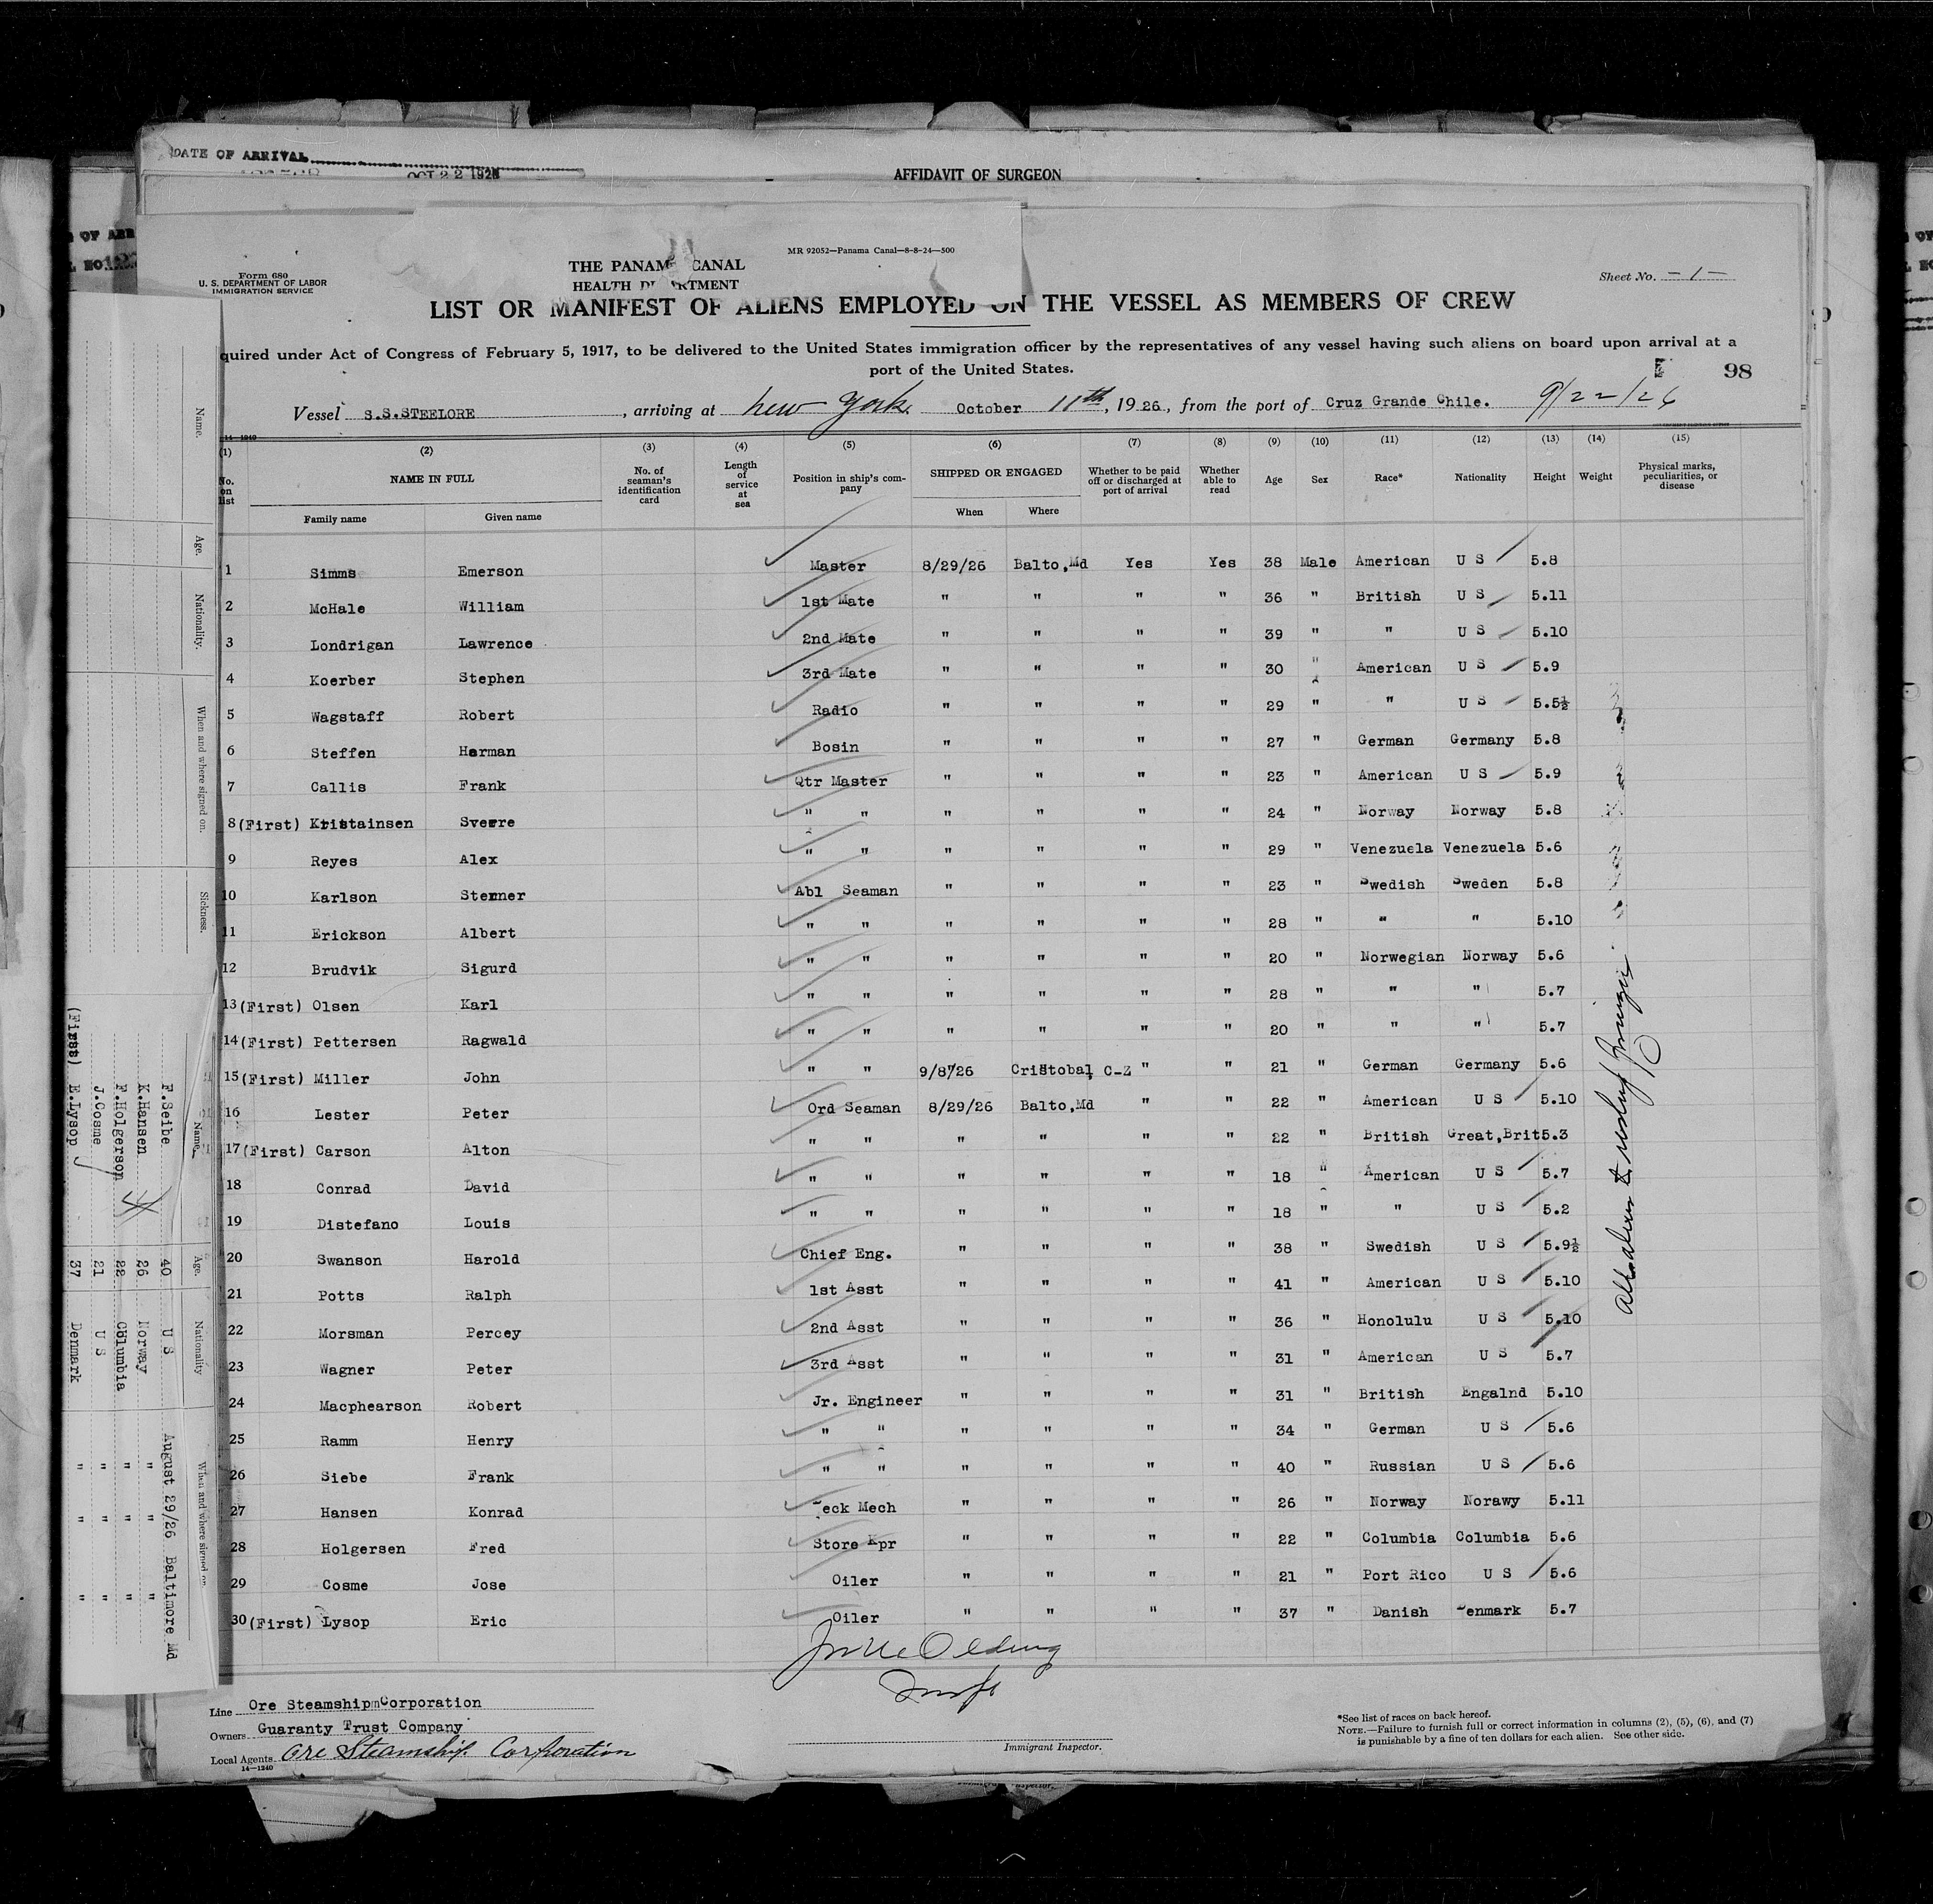 DATE OF ARRIVAL
OCT 22 1926
AFFIDAVIT OF SURGEON
MR 92052—Panama Canal—8-8-24—500
THE PANAMA CANAL
HEALTH DEPARTMENT
Form 680
U. S. DEPARTMENT OF LABOR
IMMIGRATION SERVICE
Sheet No. -1-
LIST OR MANIFEST OF ALIENS EMPLOYED ON THE VESSEL AS MEMBERS OF CREW
quired under Act of Congress of February 5, 1917, to be delivered to the United States immigration officer by the representatives of any vessel having such aliens on board upon arrival at a
port of the United States.
98
Vessel S.S.STEELORE, arriving at New York, October 11th, 1926, from the port of Cruz Grande Chile. 9/22/26
14—1240
(1) (2) (3) (4) (5) (6) (7) (8) (9) (10) (11) (12) (13) (14) (15)
No. on list NAME IN FULL No. of seaman's identification card Length of service at sea Position in ship's company SHIPPED OR ENGAGED Whether to be paid off or discharged at port of arrival Whether able to read Age Sex Race* Nationality Height Weight Physical marks, peculiarities, or disease
Family name Given name When Where
1 Simms Emerson Master 8/29/26 Balto,Md Yes Yes 38 Male American U S 5.8
2 McHale William 1st Mate " " " " 36 " British U S 5.11
3 Londrigan Lawrence 2nd Mate " " " " 39 " " U S 5.10
4 Koerber Stephen 3rd Mate " " " " 30 " American U S 5.9
5 Wagstaff Robert Radio " " " " 29 " " U S 5.5½
6 Steffen Herman Bosin " " " " 27 " German Germany 5.8
7 Callis Frank Qtr Master " " " " 23 " American U S 5.9
8 (First) Kristainsen Sverre " " " " " " 24 " Norway Norway 5.8
9 Reyes Alex " " " " " " 29 " Venezuela Venezuela 5.6
10 Karlson Stenner Abl Seaman " " " " 23 " Swedish Sweden 5.8
11 Erickson Albert " " " " " " 28 " " " 5.10
12 Brudvik Sigurd " " " " " " 20 " Norwegian Norway 5.6
13 (First) Olsen Karl " " " " " " 28 " " " 5.7
14 (First) Pettersen Ragwald " " " " " " 20 " " " 5.7
15 (First) Miller John " " 9/8/26 Cristobal, C-Z " " 21 " German Germany 5.6
16 Lester Peter Ord Seaman 8/29/26 Balto,Md " " 22 " American U S 5.10
17 (First) Carson Alton " " " " " " 22 " British Great,Brit 5.3
18 Conrad David " " " " " " 18 " American U S 5.7
19 Distefano Louis " " " " " " 18 " " U S 5.2
20 Swanson Harold Chief Eng. " " " " 38 " Swedish U S 5.9½
21 Potts Ralph 1st Asst " " " " 41 " American U S 5.10
22 Morsman Percey 2nd Asst " " " " 36 " Honolulu U S 5.10
23 Wagner Peter 3rd Asst " " " " 31 " American U S 5.7
24 Macphearson Robert Jr. Engineer " " " " 31 " British Engalnd 5.10
25 Ramm Henry " " " " " " 34 " German U S 5.6
26 Siebe Frank " " " " " " 40 " Russian U S 5.6
27 Hansen Konrad eck Mech " " " " 26 " Norway Norawy 5.11
28 Holgersen Fred Store Kpr " " " " 22 " Columbia Columbia 5.6
29 Cosme Jose Oiler " " " " 21 " Port Rico U S 5.6
30 (First) Lysop Eric Oiler " " " " 37 " Danish Denmark 5.7
Line Ore Steamship Corporation
Owners Guaranty Trust Company
Local Agents Ore Steamship Corporation
14—1240
Immigrant Inspector.
*See list of races on back hereof.
NOTE.—Failure to furnish full or correct information in columns (2), (5), (6), and (7)
is punishable by a fine of ten dollars for each alien. See other side.
Name. Age. Nationality. When and where signed on. Sickness.
Name. Age. Nationality When and where signed on.
F.Seibe 40 U S August 29/26 Baltimore Md
K.Hansen 26 Norway " " "
F.Holgerson 22 Columbia " " "
J.Cosme 21 U S " " "
(First) E.Lysop 37 Denmark " " "